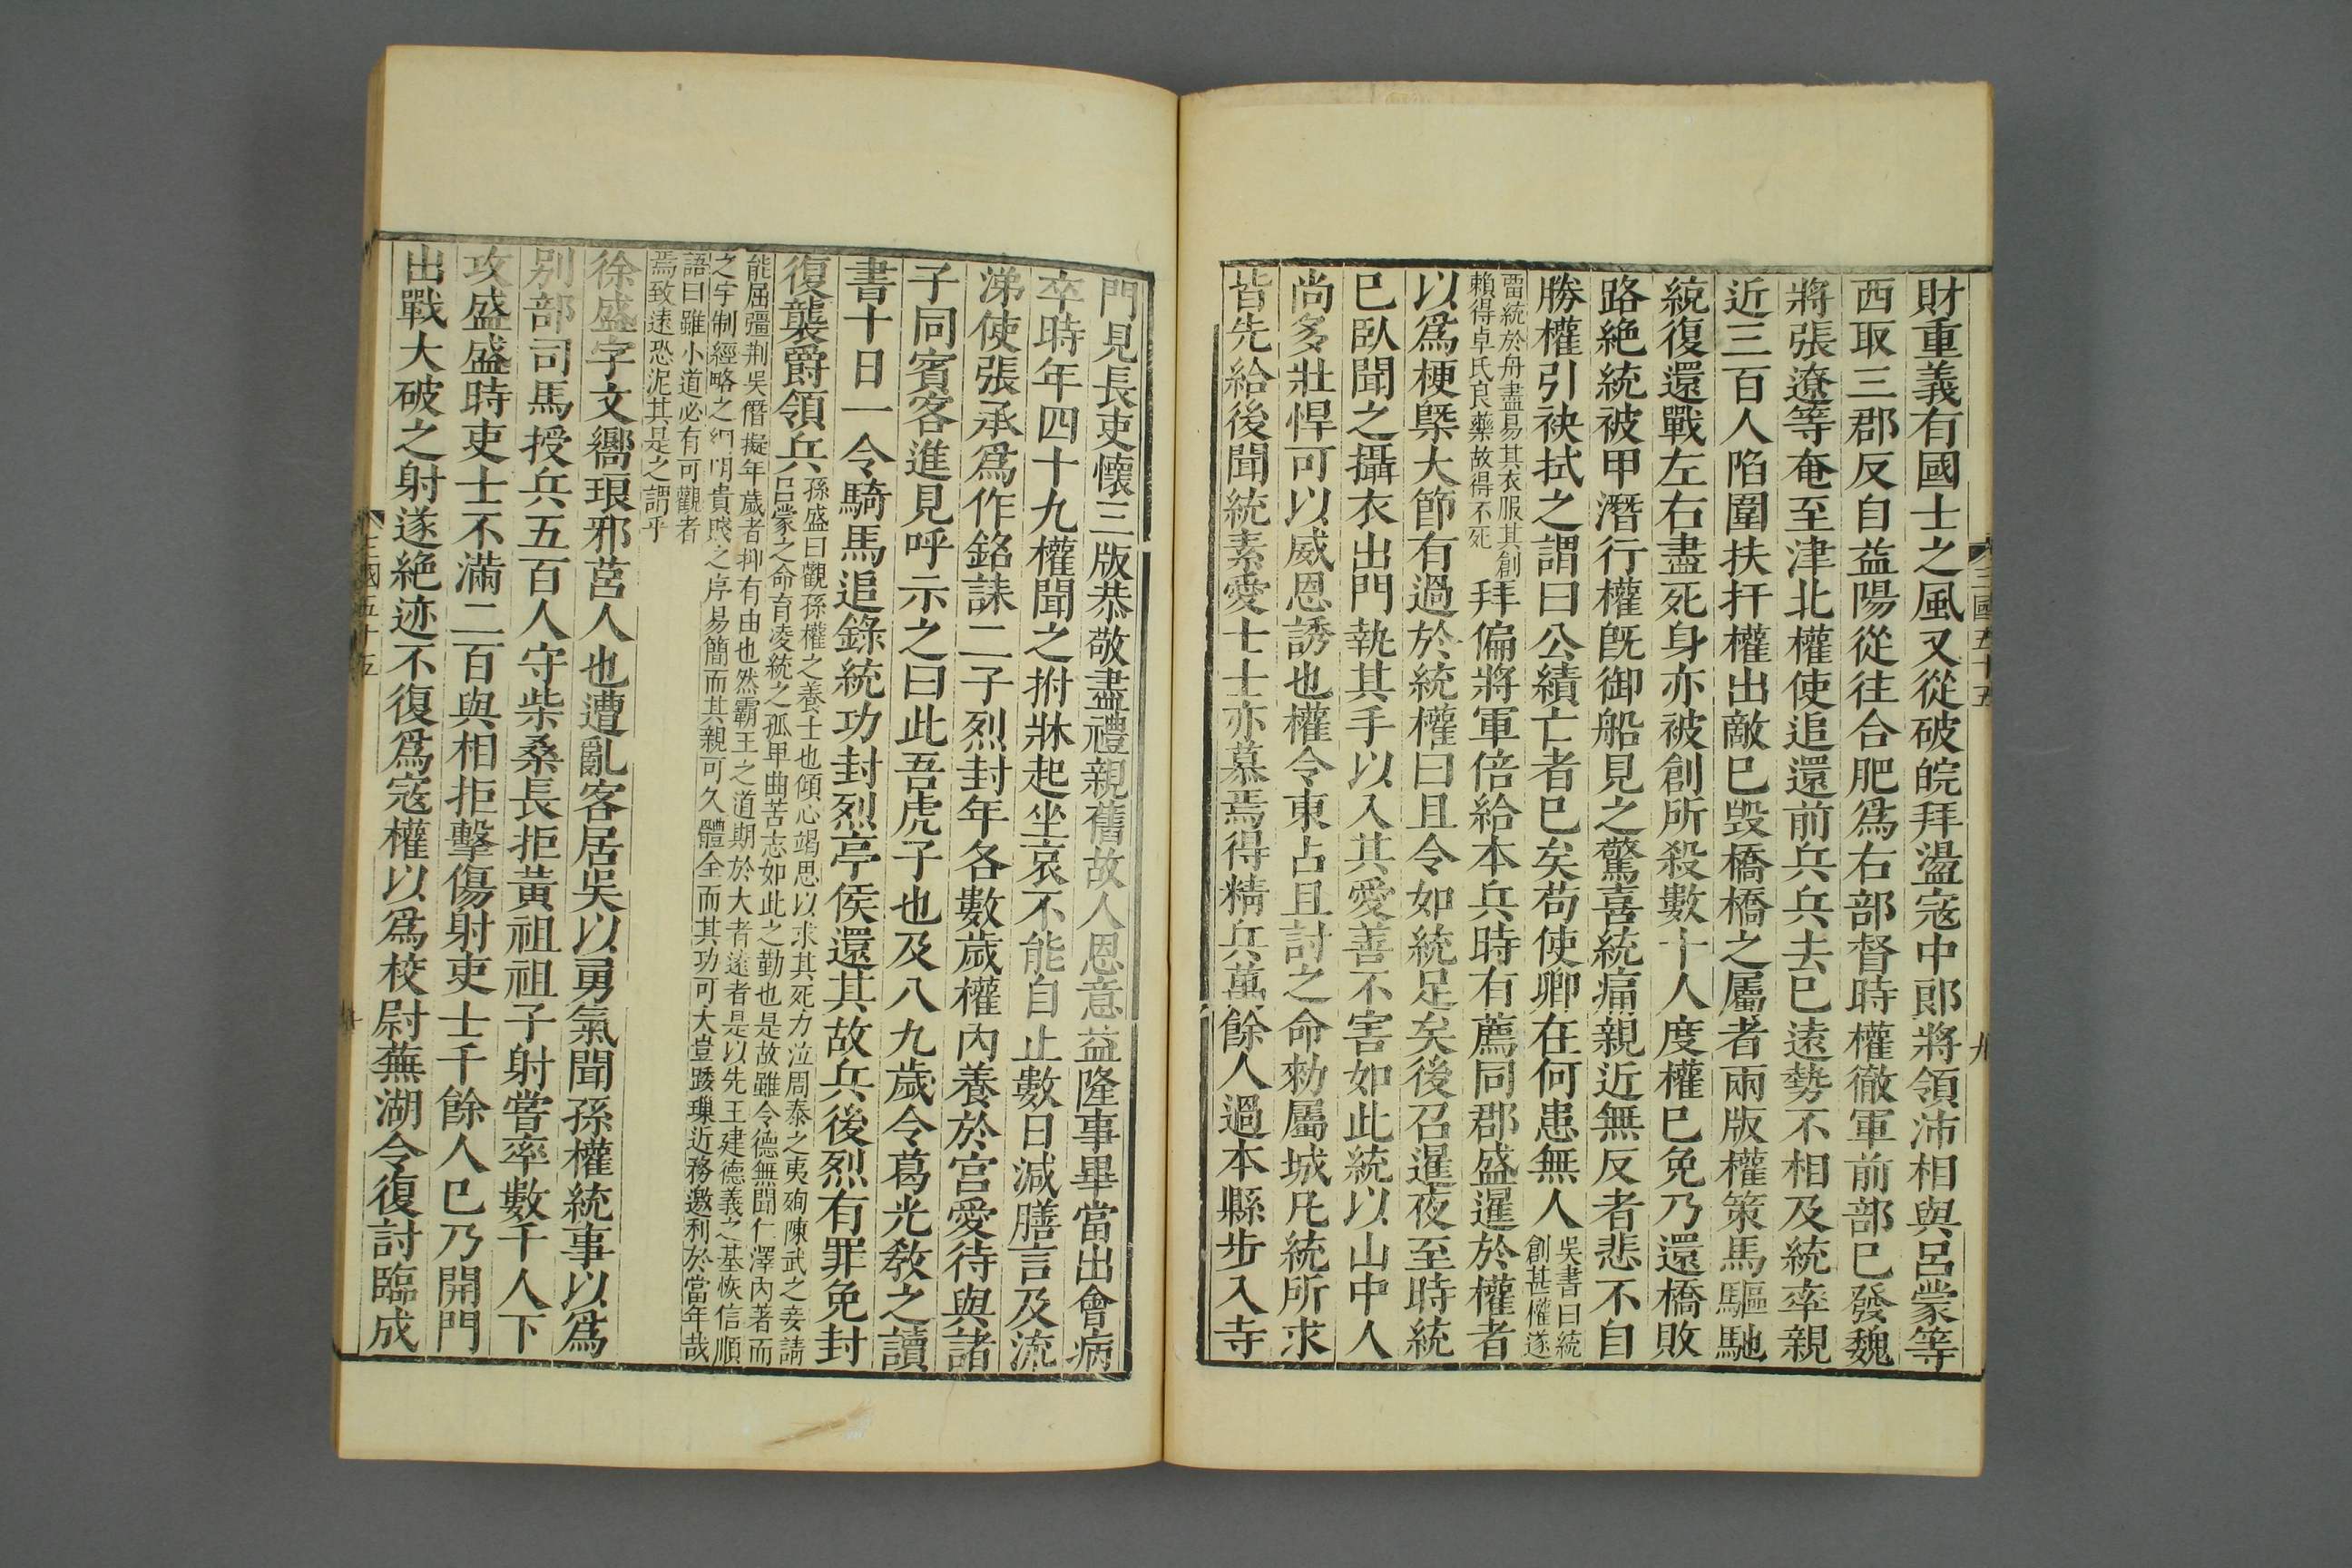 財重義有國士之風又從破皖拜盪宼中郎將領沛相與呂蒙等
西取三郡反自益陽從往合肥爲右部督時權徹軍前部已發魏
將張遼等奄至津北權使追還前兵兵去已遠勢不相及統率親
近三百人陷圍扶扞權出敵已毀橋橋之屬者兩版權策馬驅馳
統復還戰左右盡死身亦被創所殺數十人度權已免乃還橋敗
路絶統被甲潛行權旣御船見之驚喜統痛親近無反者悲不自
勝權引袂拭之謂曰公績亡者已矣苟使卿在何患無人
吳書曰統
創甚權遂
畱統於舟盡易其衣服其創
賴得卓氏良藥故得不死
拜偏將軍倍給本兵時有薦同郡盛暹於權者
以爲梗槩大節有過於統權曰且令如統足矣後召暹夜至時統
已臥聞之攝衣出門執其手以入其愛善不害如此統以山中人
尚多壯悍可以威恩誘也權令東占且討之命勑屬城凡統所求
皆先給後聞統素愛士士亦慕焉得精兵萬餘人過本縣步入寺
三國五十五
門見長吏懷三版恭敬盡禮親舊故人恩意益隆事畢當出會病
卒時年四十九權聞之拊牀起坐哀不能自止數日減膳言及流
涕使張承爲作銘誄二子烈封年各數歲權內養於宮愛待與諸
子同賓客進見呼示之曰此吾虎子也及八九歲令葛光敎之讀
書十日一令騎馬追錄統功封烈亭侯還其故兵後烈有罪免封
復襲爵領兵
孫盛曰觀孫權之養士也傾心竭思以求其死力泣周泰之夷殉陳武之妾請
呂蒙之命育凌統之孤卑曲苦志如此之勤也是故雖令德無聞仁澤內著而
能屈彊荆吳僭擬年歲者抑有由也然霸王之道期於大者遠者是以先王建德義之基恢信順
之宇制經略之綱明貴賤之序易簡而其親可久體全而其功可大豈踒璅近務邀利於當年哉
語曰雖小道必有可觀者
焉致遠恐泥其是之謂乎
徐盛字文嚮琅邪莒人也遭亂客居吳以勇氣聞孫權統事以爲
别部司馬授兵五百人守柴桑長拒黃祖祖子射嘗率數千人下
攻盛盛時吏士不滿二百與相拒擊傷射吏士千餘人已乃開門
出戰大破之射遂絶迹不復爲宼權以爲校尉蕪湖令復討臨成
三國五十五